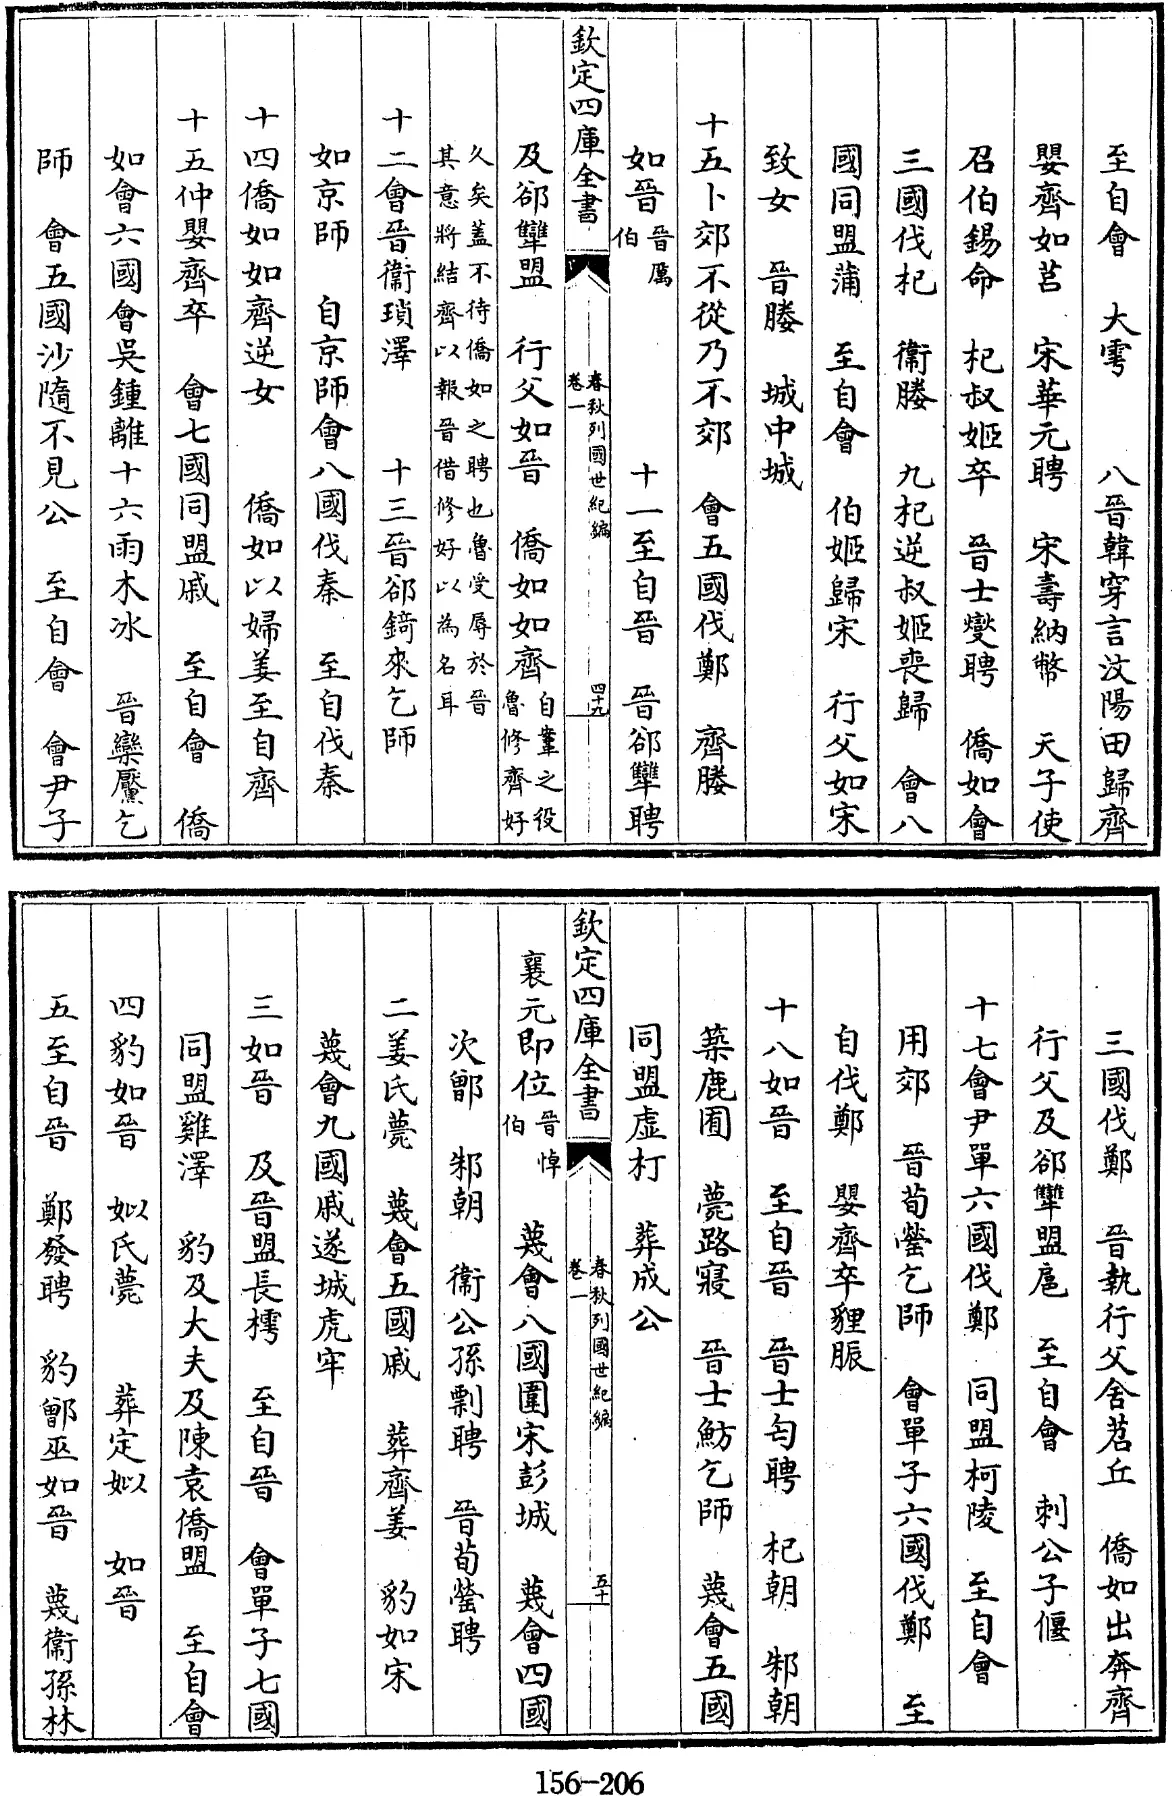 至自會　大雩　　八晉韓穿言汶陽田歸齊
嬰齊如莒　宋華元聘　宋壽納幣　天子使
召伯錫命　杞叔姬卒　晉士燮聘　僑如會
三國伐杞　衞媵　九杞逆叔姬喪歸　會八
國同盟蒲　至自會　伯姬歸宋　行父如宋
致女　晉媵　城中城
十五卜郊不從乃不郊　會五國伐鄭　齊媵
如晉晉厲伯　　　　十一至自晉　晉郤犫聘
欽定四庫全書　春秋列國世紀編卷一　四十九
及郤犫盟　行父如晉　僑如如齊自鞌之役魯修齊好
久矣蓋不待僑如之聘也魯受辱於晉
其意將結齊以報晉借修好以為名耳
十二會晉衞瑣澤　　十三晉郤錡來乞師
如京師　自京師會八國伐秦　至自伐秦
十四僑如如齊逆女　　僑如以婦姜至自齊
十五仲嬰齊卒　會七國同盟戚　至自會　僑
如會六國會吳鍾離十六雨木冰　晉欒黶乞
師　會五國沙隨不見公　至自會　會尹子
三國伐鄭　晉執行父舍苕丘　僑如出奔齊
行父及郤犫盟扈　至自會　刺公子偃
十七會尹單六國伐鄭　同盟柯陵　至自會
用郊　晉荀罃乞師　會單子六國伐鄭　至
自伐鄭　嬰齊卒貍脤
十八如晉　至自晉　晉士匄聘　杞朝　邾朝
築鹿囿　薨路寢　晉士魴乞師　蔑會五國
同盟虛朾　葬成公
欽定四庫全書　春秋列國世紀編卷一　五十
襄元即位晉悼伯　蔑會八國圍宋彭城　蔑會四國
次鄫　邾朝　衞公孫剽聘　晉荀罃聘
二姜氏薨　蔑會五國戚　葬齊姜　豹如宋
蔑會九國戚遂城虎牢
三如晉　及晉盟長樗　至自晉　會單子七國
同盟雞澤　豹及大夫及陳袁僑盟　至自會
四豹如晉　姒氏薨　　葬定姒　如晉
五至自晉　鄭發聘　豹鄫巫如晉　蔑衞孫林
156-206